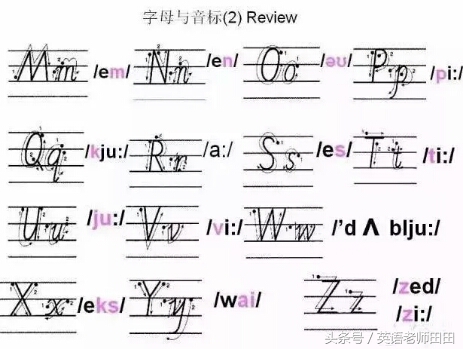 字母与音标(2) Review
Mm /em/ Nn /en/ Oo /əʊ/ Pp /pi:/
Qq /kju:/ Rr /a:/ Ss /es/ Tt /ti:/
Uu /ju:/ Vv /vi:/ Ww /'d Λ blju:/
Xx /eks/ Yy /wai/ Zz /zed/
/zi:/
头条号 / 英语老师田田